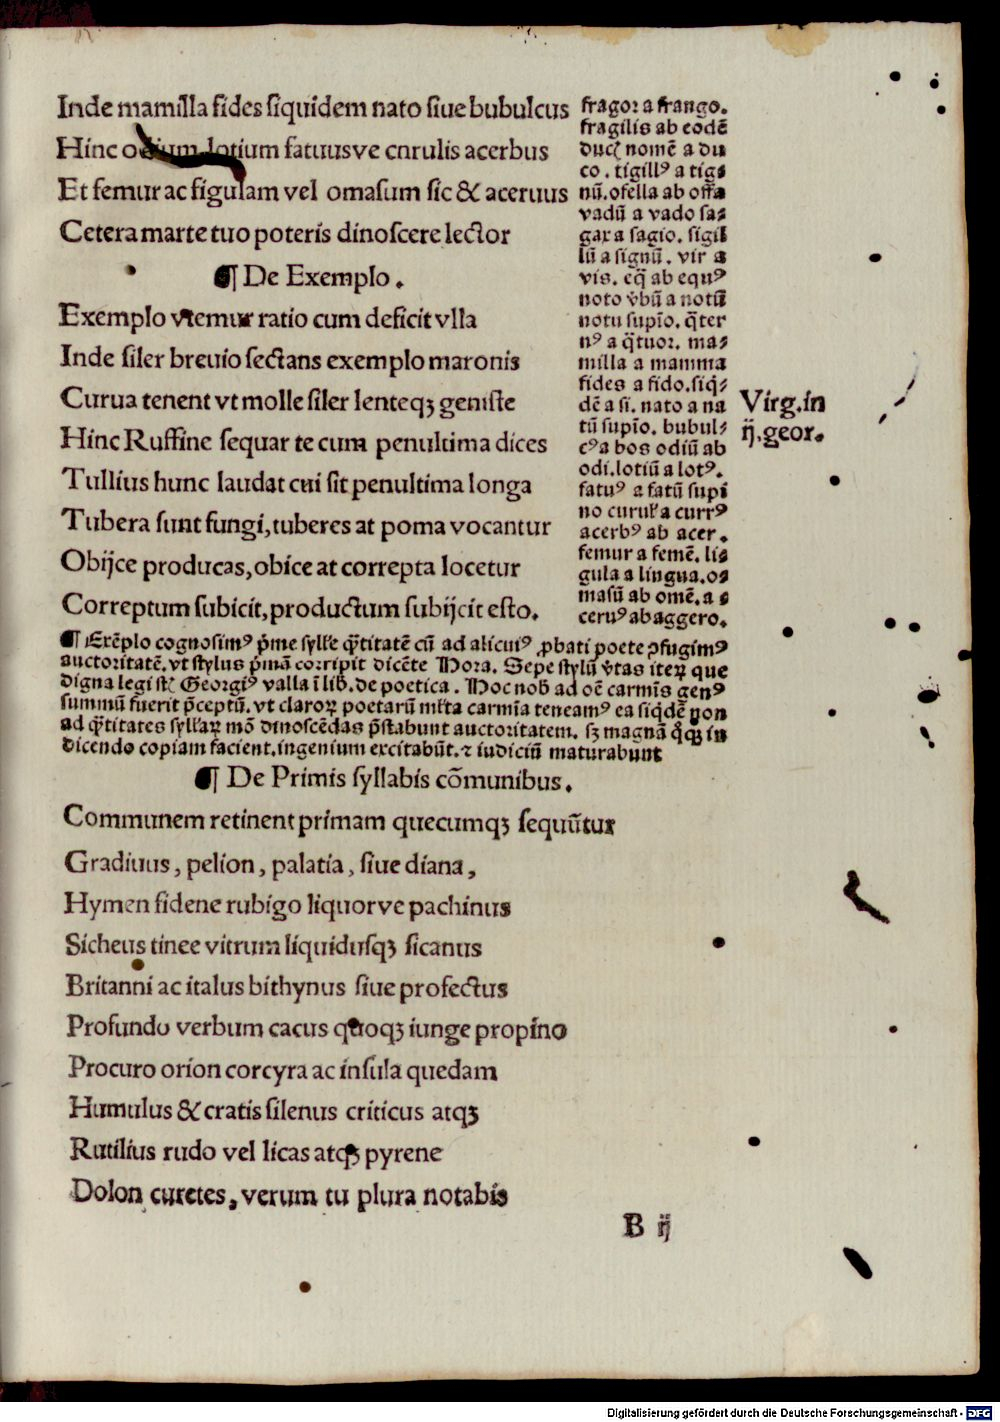 Inde mamilla fides siquidem nato siue bubulcus
Hinc odium lotium fatuusve curulis acerbus
Et femur ac figulam vel omasum sic & aceruus
Cetera marte tuo poteris dinoscere lector
¶ De Exemplo.
Exemplo vtemur ratio cum deficit vlla
Inde siler breuio sectans exemplo maronis
Curua tenent vt molle siler lenteqꝫ geniste
Hinc Ruffine sequar te cum penultima dices
Tullius hunc laudat cui sit penultima longa
Tubera sunt fungi, tuberes at poma vocantur
Obijce producas, obice at correpta locetur
Correptum subicit, productum subijcit esto.
fragor a frango.
fragilis ab eodē
nomē a du
co. tigillꝰ a tigs
nū. ofella ab offa
vadū a vado sa⸗
gax a sagio. sigil
lū a signū. vir a
vis. eq̄ ab equꝰ
noto v̄bū a notū
notu supīo. q̄ter
nꝰ a q̄tuor. ma⸗
milla a mamma
fides a fido. siq̄⸗
dē a si. nato a na
tū supīo. bubul⸗
cꝰ a bos odiū ab
odi. lotiū a lotꝰ.
fatuꝰ a fatū supi
no curul' a currꝰ
acerbꝰ ab acer.
femur a femē. li⸗
gula a lingua. o⸗
masū ab omē. a s
ceruꝰ ab aggero.
Virg. in
ij. geor.
¶ Exēplo cognosimꝰ p̄me syll'e q̄titatē cū ad alicuiꝰ ꝓbati poete ꝯfugimꝰ
auctoritatē. vt stylus p̄mā corripit dicēte Hora. Sepe stylū v̄tas iteꝝ que
digna legi st̄ Georgiꝰ valla ī lib̄. de poetica. Hoc nob̄ ad oē carmīs genꝰ
summū fuerit p̄ceptū. vt claroꝝ poetarū ml'ta carmīa teneamꝰ ea siq̄dē non
ad q̄titates syll'aꝝ mō dinoscēdas p̄stabunt auctoritatem. sꝫ magnā q̊qꝫ in
dicendo copiam facient. ingenium excitabūt. ⁊ iudiciū maturabunt
¶ De Primis syllabis cōmunibus.
Communem retinent primam quecumqꝫ sequūtur
Gradiuus, pelion, palatia, siue diana,
Hymen fidene rubigo liquorve pachinus
Sicheus tinee vitrum liquidusqꝫ sicanus
Britanni ac italus bithynus siue profectus
Profundo verbum cacus quoqꝫ iunge propino
Procuro orion corcyra ac insula quedam
Humulus & cratis silenus criticus atqꝫ
Rutilius rudo vel licas atqꝫ pyrene
Dolon curetes, verum tu plura notabis
B ij
Digitalisierung gefördert durch die Deutsche Forschungsgemeinschaft - DFG